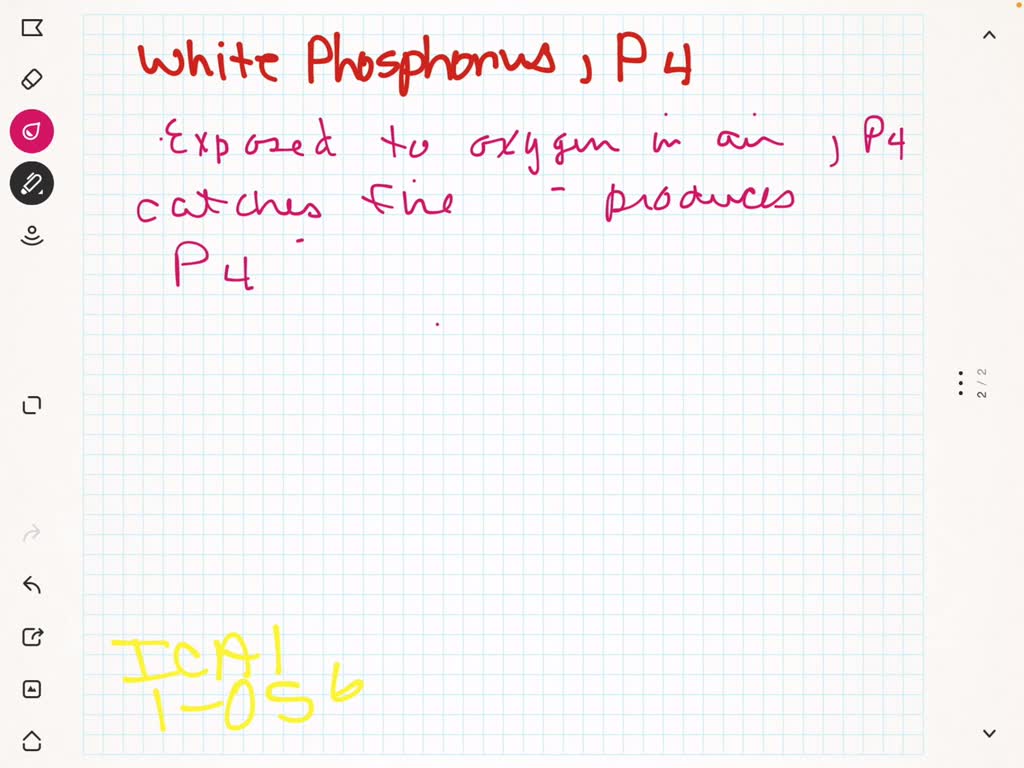 White Phosphorus, P4
Exposed to oxygen in air, P4
catches fire - produces
P4
ICA1
1-056
2/2